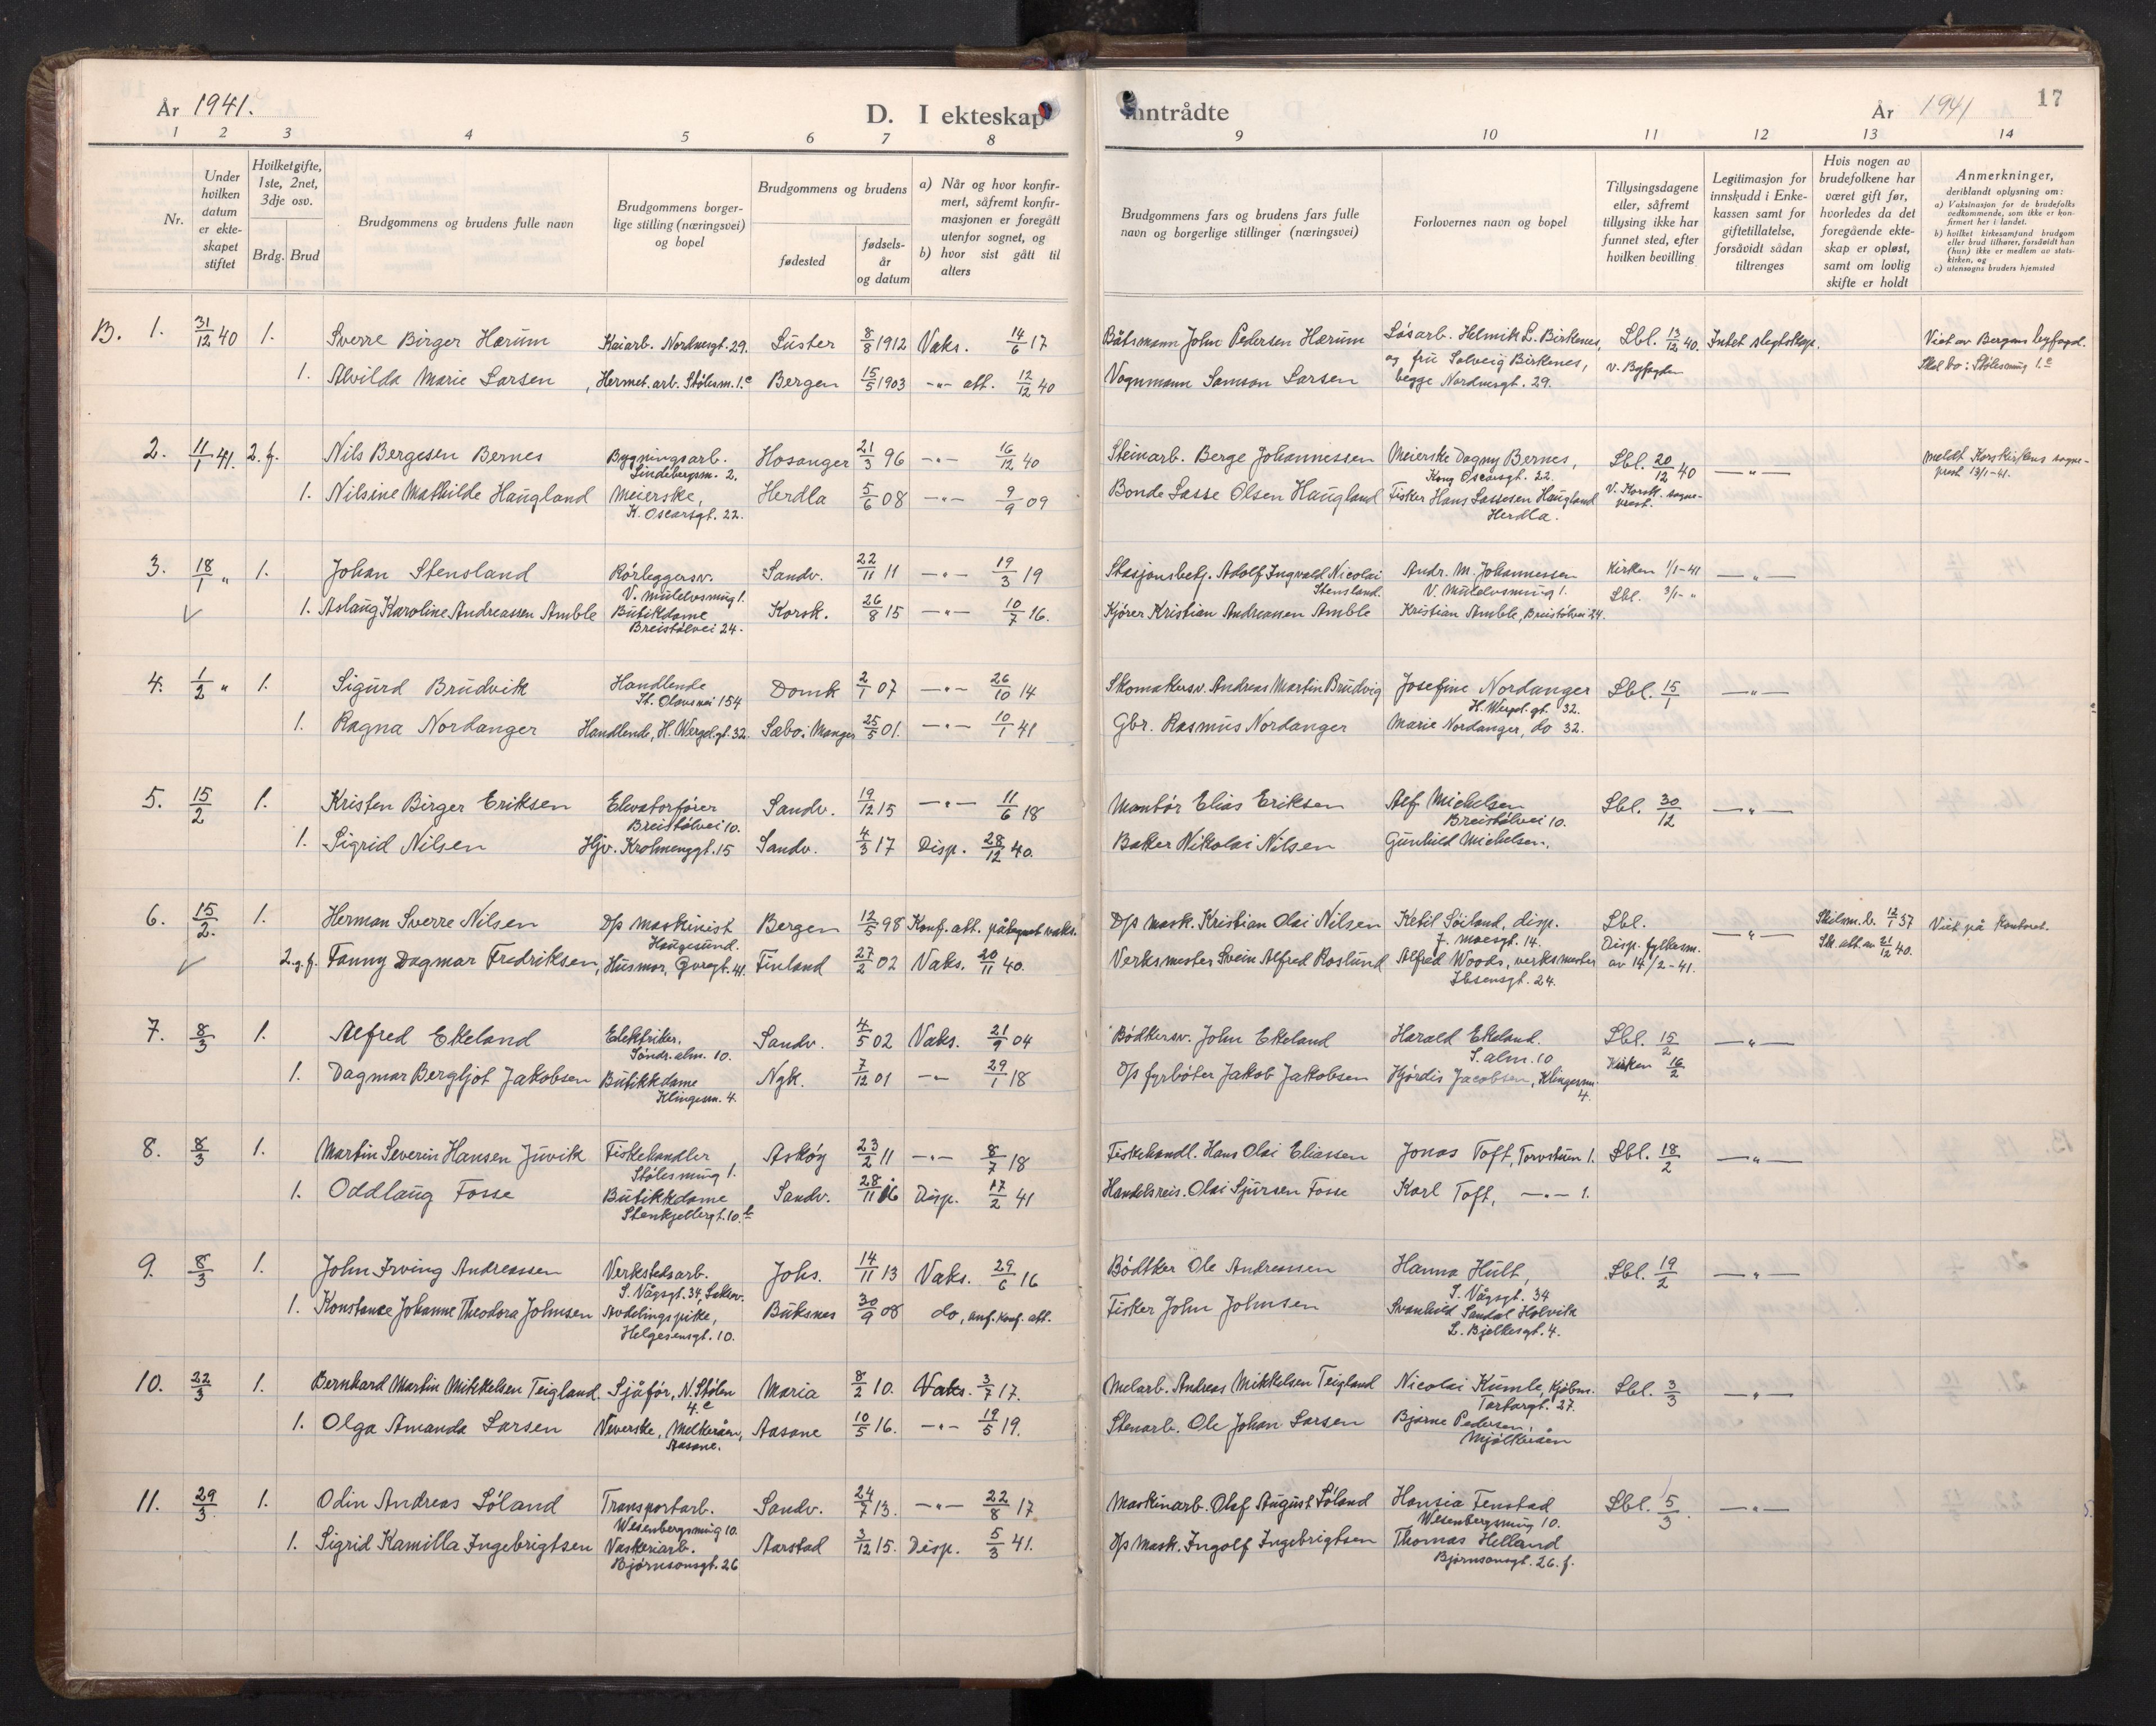 År 1941.
D. I ekteskap
inntrådte
År 1941
17
1 2 3 4 5 6 7 8
9 10 11 12 13 14
Nr.
Under hvilken datum er ekteskapet stiftet
Hvilket gifte, 1ste, 2net, 3dje osv.
Brdg. Brud
Brudgommens og brudens fulle navn
Brudgommens borgerlige stilling (næringsvei) og bopel
Brudgommens og brudens
fødested
fødselsår og datum
a) Når og hvor konfirmert, såfremt konfirmasjonen er foregått utenfor sognet, og
b) hvor sist gått til alters
Brudgommens fars og brudens fars fulle navn og borgerlige stillinger (næringsvei)
Forlovernes navn og bopel
Tillysingsdagene eller, såfremt tillysing ikke har funnet sted, efter hvilken bevilling
Legitimasjon for innskudd i Enkekassen samt for giftetillatelse, forsåvidt sådan tiltrenges
Hvis nogen av brudefolkene har været gift før, hvorledes da det foregående ekteskap er opløst, samt om lovlig skifte er holdt
Anmerkninger, deriblandt oplysning om:
a) Vaksinasjon for de brudefolks vedkommende, som ikke er konfirmert her i landet.
b) hvilket kirkesamfund brudgom eller brud tilhører, forsåvidt han (hun) ikke er medlem av statskirken, og
c) utensogns bruders hjemsted
B. 1. 31/12 40 1. Sverre Birger Hærum Kaiarb. Nordnesgt. 29. Luster 8/8 1912 Vaks. 14/6 17 Båtsmann John Pedersen Hærum Løsarb. Helmik L. Birkenes, Lbl. 13/12 40. Intet slegtskap. Viet av Bergens byfogd.
og fru Solveig Birkenes, v. Byfogden Skal bo: Stølesmug 1.c
1. Alvilda Marie Larsen, Hermet.arb. Stølesm. 1.c Bergen 15/5 1903 -"- att. 12/12 40 Vognmann Samson Larsen begge Nordnesgt. 29.
2. 11/1 41. 2. f. Nils Bergesen Bernes Bygningsarb. Lindebergsm. 2. Hosanger 21/3 96 -"- 16/12 40 Steinarb. Berge Johannessen Meierske Dagny Bernes, Kong Oscarsgt. 22. Lbl. 20/12 40 -"- meldt Korskirkens sogneprest 13/1-41.
1. Nilsine Mathilde Haugland Meierske, K. Oscarsgt. 22. Herdla 5/6 08 -"- 9/9 09 Bonde Lasse Olsen Haugland Fisker Hans Lassesen Haugland Herdla. V. Korsk. sogneprest.
3. 18/1 " 1. Johan Stensland Rørleggersv. V. Mulelvsmug 1. Sandv. 22/11 11 -"- 19/3 19 Stasjonsbetj. Adolf Ingvald Nicolai Stensland. Andr. M. Johannessen V. Mulelvsmug 1. Kirken 1/1-41 -"-
Lbl. 3/1- "
1. Aslaug Karoline Andreassen Amble Butikdame Breistølvei 24. Korsk. 26/8 15 -"- 10/7 16. Kjører Kristian Andreassen Amble Kristian Amble, Breistølvei 24.
4. 1/2 " 1. Sigurd Brudvik Handlende St. Olavsvei 154 Domk 2/1 07 -"- 26/10 14 Skomakersv. Andreas Martin Brudvig Josefine Nordanger H. Wergel.gt. 32. Lbl. 15/1 -"-
1. Ragna Nordanger Handlende, H. Wergel.gt. 32. Sæbø i Manger 25/5 01. -"- 10/1 41 Gbr. Rasmus Nordanger Marie Nordanger, do 32.
5. 15/2 1. Kristen Birger Eriksen Elevatorfører Breistølvei 10. Sandv. 19/12 15 -"- 11/6 18 Montør Elias Eriksen Alf Michelsen Breistølvei 10. Lbl. 30/12 -"-
1. Sigrid Nilsen Hjv. Krohnenggt. 15 Sandv. 4/3 17 Disp. 28/12 40. Baker Nikolai Nilsen Gunhild Michelsen.
6. 15/2. 1. Herman Sverre Nilsen D/s maskinist Haugesund. Bergen 12/5 98 Konf. att. påtegnet vaks. D/s mask. Kristian Olai Nilsen Ketil Søiland, disp. J. Moesgt. 14. Lbl. -"- Skilsm. b. 12/1 37 Viet på kontoret.
Disp. fylkesm. av 14/2-41. Sk. att. av 21/12 40.
2. g. f. Fanny Dagmar Fredriksen, Husmor, 41. Finland 27/2 02 Vaks. 20/11 40. Verksmester Svein Alfred Roslund Alfred Woods, verksmester Ibsensgt. 24.
7. 8/3 1. Alfred Ekeland Elektriker. Søndr. alm. 10. Sandv. 4/5 02 Vaks. 21/9 04 Bødkersv. John Ekeland Harald Ekeland. S. alm. 10 Lbl. 15/2 -"-
Kirken 16/2
1. Dagmar Bergljot Jakobsen Butikkdame Klingesm. 4. Nyk. 7/12 01 -"- 29/1 18 D/s fyrbøter Jakob Jakobsen Hjørdis Jacobsen, Klingesm. 4.
8. 8/3 1. Martin Severin Hansen Juvik Fiskehandler Stølesmug 1. Askøy 23/2 11 -"- 8/7 18 Fiskehandl. Hans Olai Eliassen Jonas Toft, 1. Lbl. 18/2 -"-
1. Oddlaug Fosse Butikkdame Stenkjellergt. 10.b Sandv. 28/11 16 Disp. 17/2 41 Handelsreis. Olai Sjursen Fosse Karl Toft, -"- 1.
9. 8/3 1. John Irving Andreassen Verkstedsarb. S. Vågsgt. 34, Laksev. Johs. 14/11 13 Vaks. 29/6 16 Bødtker Ole Andreassen Hanna Hult, S. Vågsgt. 34 Lbl. 19/2 -"-
1. Konstanse Johanne Theodora Johnsen Avdelingspike, Helgesensgt. 10. Buksnes 30/9 08 do, anf. konf. att. Fisker John Johnsen Svanhild Sandal Holvik L. Bjelkesgt. 4.
10. 22/3 1. Bernhard Martin Mikkelsen Teigland Sjåfør, N. Stølen 4.c Maria 8/2 10. Vaks. 3/7 17. Melarb. Andreas Mikkelsen Teigland Nicolai Kumle, kjøbm. Tartargt. 27. Lbl. 3/3 -"-
1. Olga Amanda Larsen Veverske, Melkeråen, Aasane. Aasane 10/5 16. -"- 19/5 19. Stenarb. Ole Johan Larsen Bjarne Pedersen, Mjølkeråen
11. 29/3 1. Odin Andreas Søland Transportarb. Wesenbergsmug 10. Sandv. 24/7 13. -"- 22/8 17 Maskinarb. Olaf August Søland Hansia Fenstad Wesenbergsmug 10. Lbl. 5/3. -"-
1. Sigrid Kamilla Ingebrigtsen Vaskeriarb. Bjørnsonsgt. 26 Aarstad 3/12 15. Disp. 5/3 41. D/s mask. Ingolf Ingebrigtsen Thomas Helland Bjørnsonsgt. 26. f.